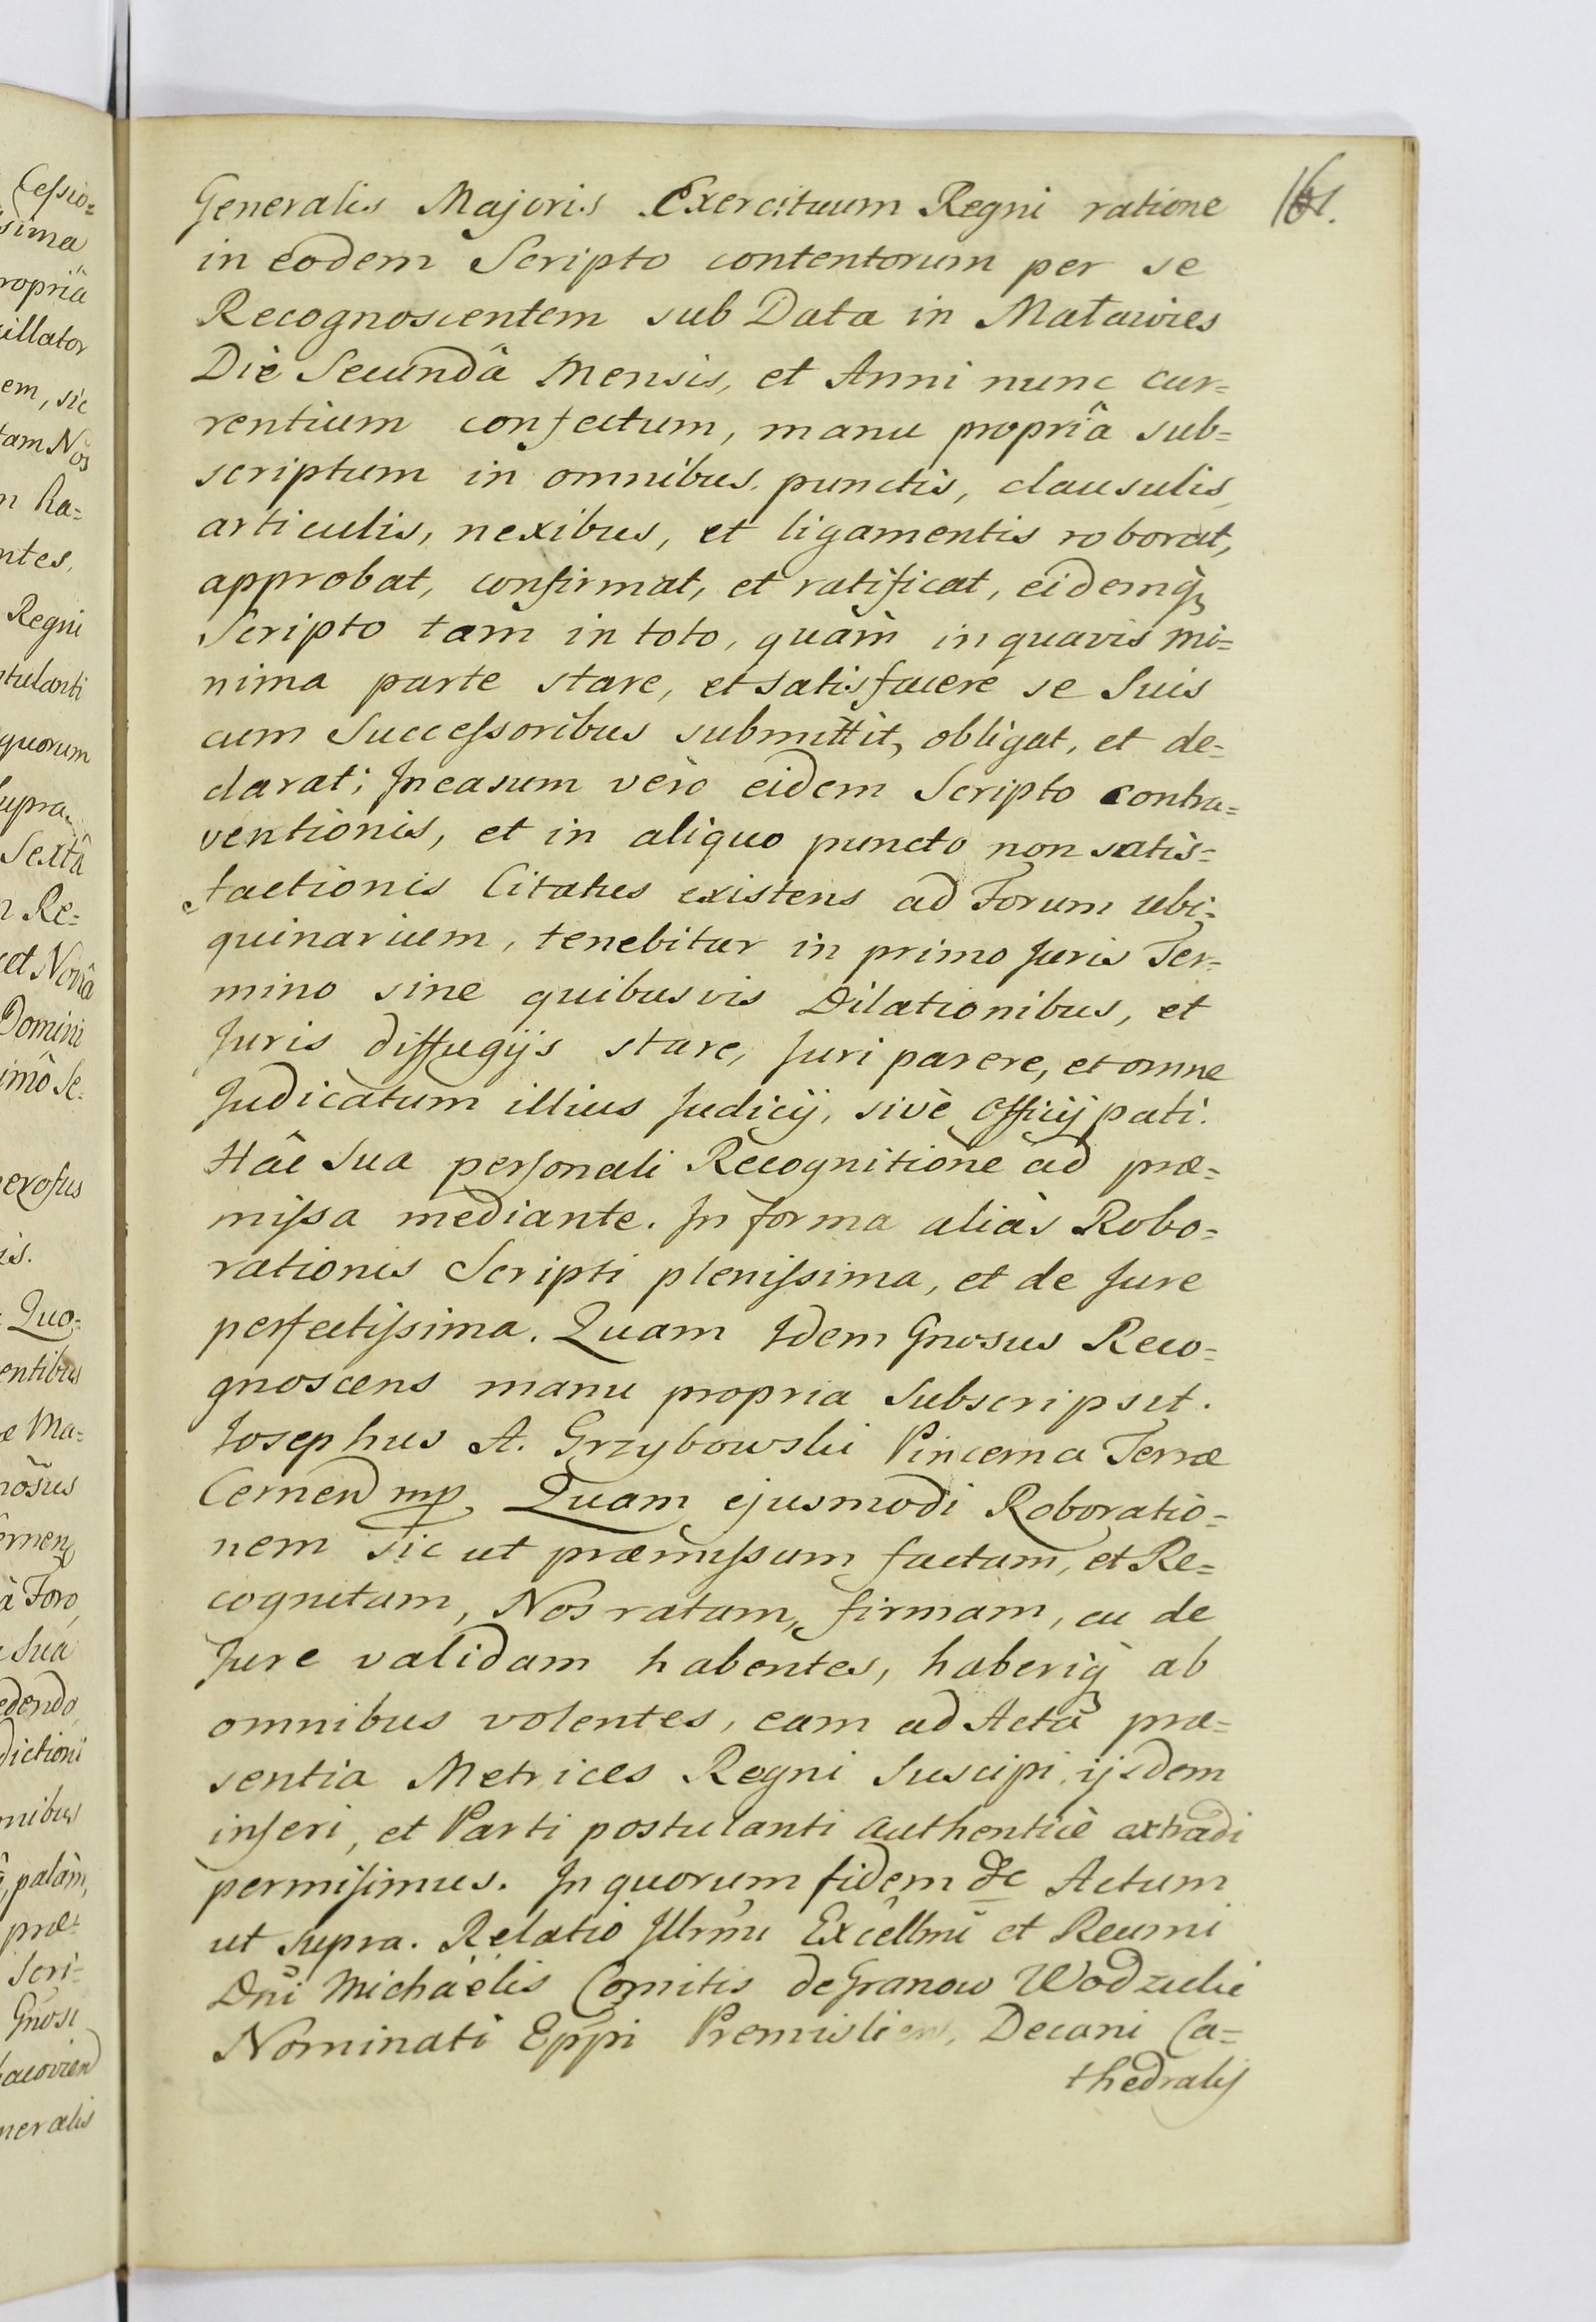 Generalis Majoris Exercituum Regni ratione
161.
in eodem Scripto contentorum per se
Recognoscentem sub Data in Matawies
Die Secundâ Mensis, et Anni nunc cur=
rentium confectum, manu propriâ sub=
scriptum in omnibus punctis, clausulis,
articulis, nexibus, et ligamentis roborat,
approbat, confirmat, et ratificat, eidemq
Scripto tam in toto, quàm in quavis mi=
nima parte stare, et satisfacere se suis
cum Successoribus submittit, obligat, et de=
clarat; Incasum verò eidem Scripto contra=
ventionis, et in aliquo puncto non satis=
factionis Citatus existens ad Forum ubi=
quinarium, tenebitur in primo Juris Ter=
mino sine quibusvis Dilationibus, et
Juris diffugijs stare, Juri parere, et omne
Judicatum illius Judicij, sivè Officij pati.
Hâc sua personali Recognitione ad præ=
missa mediante. In forma aliàs Robo=
rationis Scripti plenissima, et de Jure
perfectissima. Quam Idem Gnosus Reco=
gnoscens manu propria subscripsit.
Josephus A. Grzybowski Pincerna Terræ
Cernen mp. Quam ejusmodi Roboratio=
nem sic ut præmissum factam, et Re=
cognitam, Nos ratam, firmam, ac de
Jure validam habentes, haberiq ab
omnibus volentes, eam ad Acta præ=
sentia Metrices Regni Suscipi, ijsdem
inseri, et Parti postulanti authenticè extradi
permisimus. In quorum fidem &c Actum
ut supra. Relatio Illrmi Excellmi et Reumi
Dni Michaëlis Comitis de Granow Wodzicki
Nominati Eppi Premislien, Decani Ca=
thedralis
Cessio=
sima
ropriâ
em, sic
tam Nos
n Ra=
ntes,
Regni
tulanti
quorum
supra.
Sextâ
n Re=
et Novâ
Domini
imô Se=
erosus
is.
Quo=
entibus
æ Ma=
nôsus
ernen
à Foro
suâ
edendo
dictioni
nibus
palàm,
præ=
Scri=
Gnosi
acovien
neralis